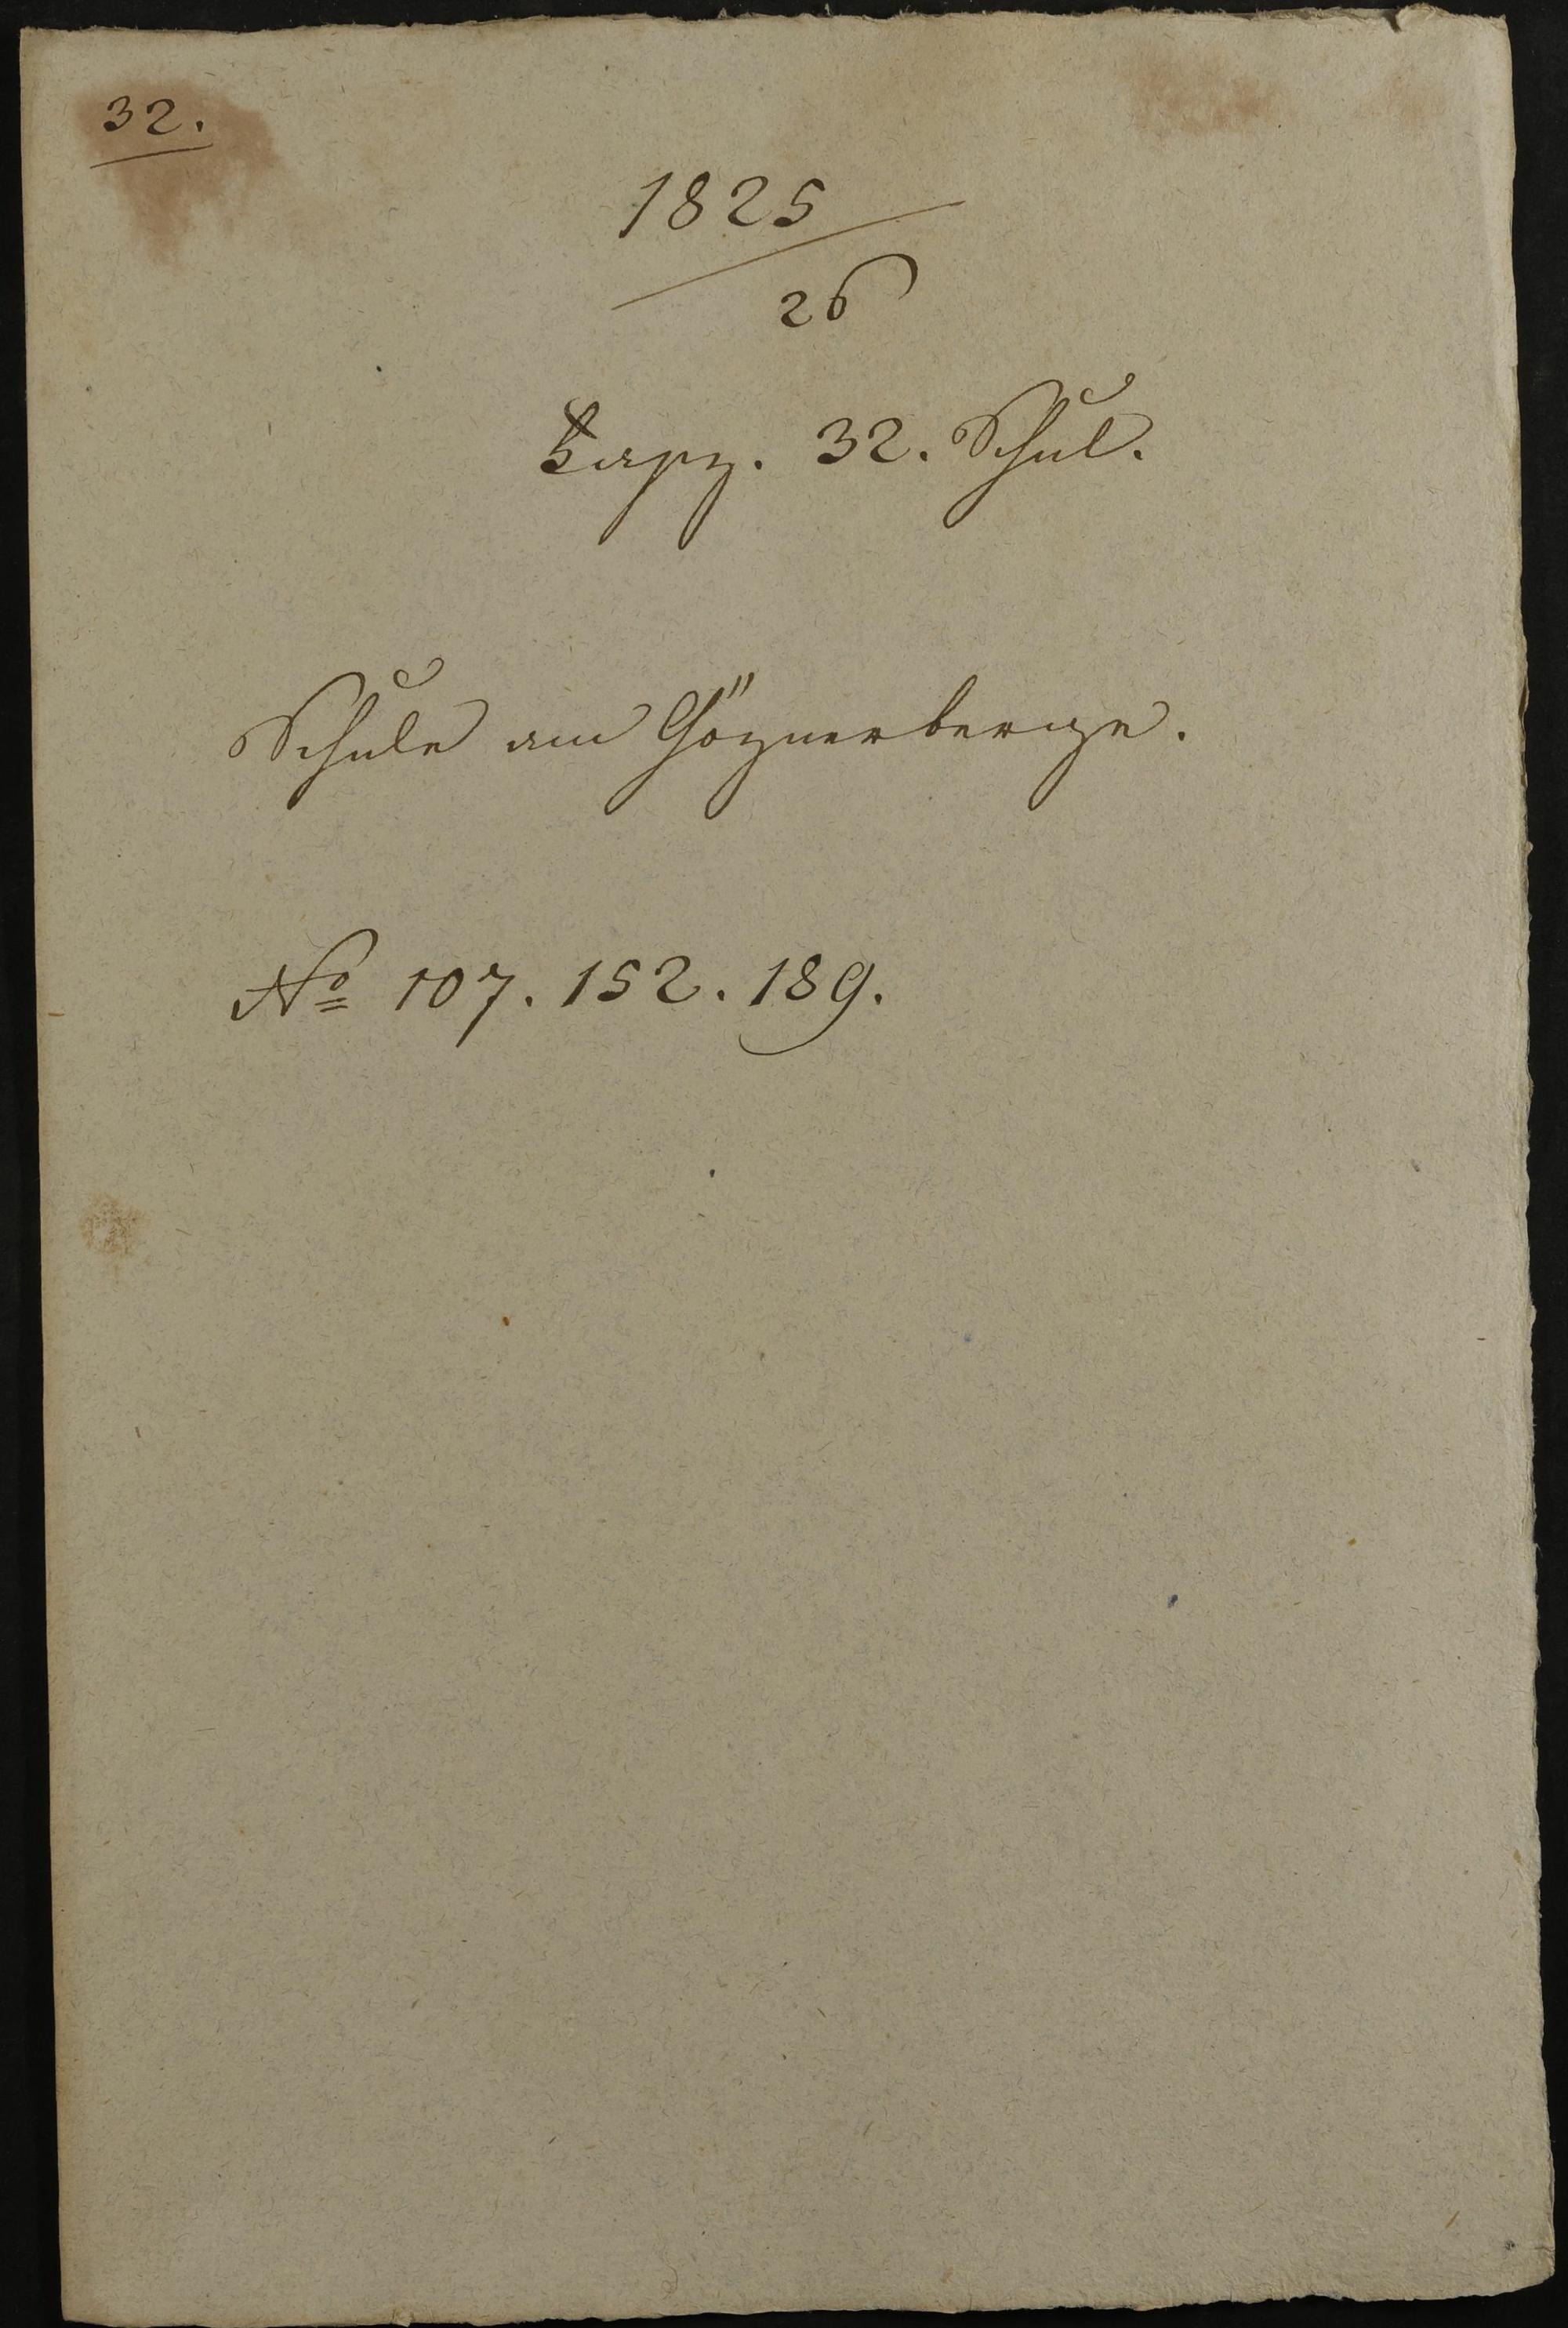 32.
1825
26
Fasz. 32. Schul.
Schule am Göznerberge.
No 107. 152. 189.